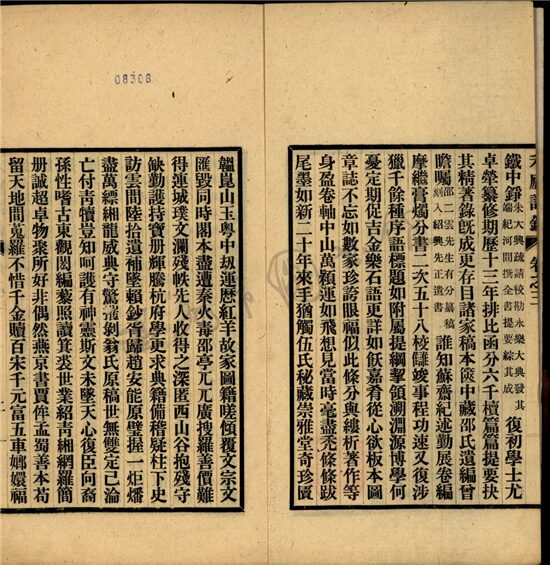 08308
鐵中錚朱大興疏請校勘永樂大典發其端紀河間撰全書提要綜其成復初學士尤
卓犖纂修期歷十三年排比函分六千櫝篇篇提要抉
其精著錄旣成更存目諸家稿本篋中藏邵氏遺編曾
瞻矚邵二雲先生有分纂稿刻入紹興先正遺書誰知蘇齋紀述勤展卷編
摩繼膏燭分書二次五十八校讎竣事程功速又復涉
獵千餘種序語標題如附屬提綱挈領溯淵源博學何
憂定期促吉金樂石語更詳如飫嘉肴從心欲板本圖
章誌不忘如數家珍誇眼福似此條分與縷析著作等
身盈卷軸中山萬穎運如飛想見當時毫盡禿條條跋
尾墨如新二十年來手猶觸伍氏秘藏崇雅堂奇珍匵
韞崑山玉粵中刼運歷紅羊故家圖籍嗟傾覆文宗文
匯毀同時閣本盡遭秦火毒邵亭兀兀廣搜羅善價難
得連城璞文瀾殘帙先人收得之深匿西山谷抱殘守
缺勤護持寶册輝騰杭府學更求典籍備稽疑柱下史
訪雲間陸拾遺補墜賴鈔胥歸趙安能原璧握一炬燔
盡萬縹緗龍威典守驚剝翁氏原稿世無雙定已淪
亡付靑犢豈知呵護有神靈斯文未墜天心復臣向裔
孫性嗜古東觀閎編藜照讀箕裘世業紹靑緗網羅簡
册誠超卓物聚所好非偶然燕京書賈侔孟蜀善本苟
留天地間蒐羅不惜千金贖百宋千元富五車嫏嬛福